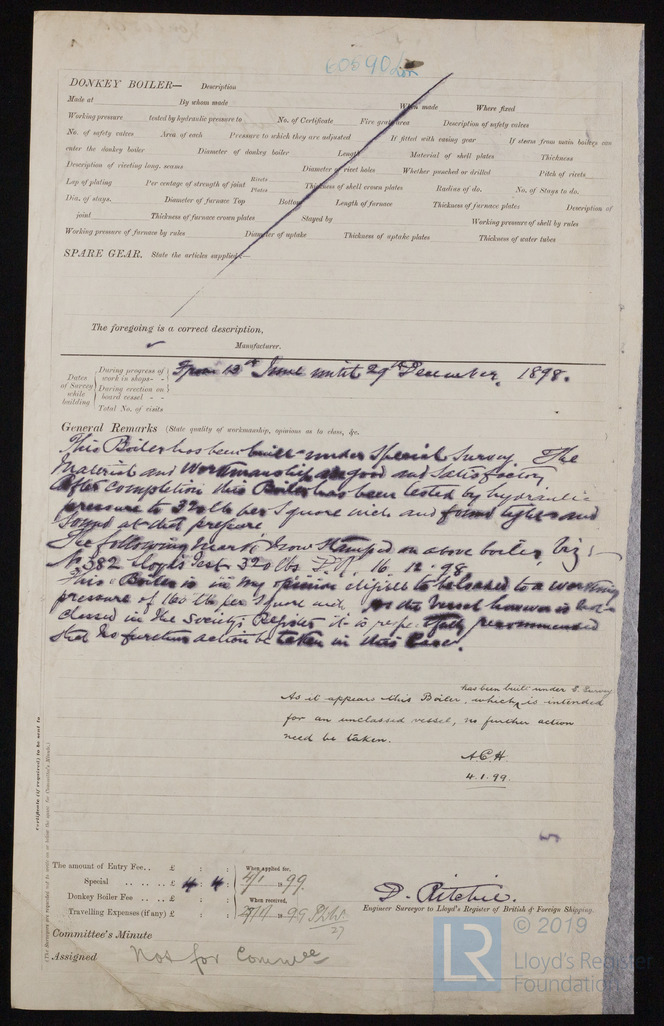 60590 Lon
DONKEY BOILER— Description
Made at By whom made When made Where fixed
Working pressure tested by hydraulic pressure to No. of Certificate Fire grate area Description of safety valves
No. of safety valves Area of each Pressure to which they are adjusted If fitted with easing gear If steam from main boilers can
enter the donkey boiler Diameter of donkey boiler Length Material of shell plates Thickness
Description of riveting long. seams Diameter of rivet holes Whether punched or drilled Pitch of rivets
Lap of plating Per centage of strength of joint Rivets Plates Thickness of shell crown plates Radius of do. No. of Stays to do.
Dia. of stays. Diameter of furnace Top Bottom Length of furnace Thickness of furnace plates Description of
joint Thickness of furnace crown plates Stayed by Working pressure of shell by rules
Working pressure of furnace by rules Diameter of uptake Thickness of uptake plates Thickness of water tubes
SPARE GEAR. State the articles supplied:—
The foregoing is a correct description,
Manufacturer.
Dates of Survey while building
During progress of work in shops - -
During erection on board vessel - - -
Total No. of visits
From 13th June until 29th December, 1898.
General Remarks (State quality of workmanship, opinions as to class, &c.
This Boiler has been built under Special Survey The
Material and Workmanship are good and satisfactory
After completion this Boiler has been tested by hydraulic
pressure to 320 lb per Square inch and found tight and
sound at that pressure
The following Mark now Stamped on above boiler, Viz:-
No 382 Lloyds Test 320 lbs 16. 12. 98.
This Boiler is in my opinion eligible to be loaded to a working
pressure of 160 lb per Square inch, As the Vessel however is not
classed in the Society's Register it is respectfully recommended
that no further action be taken in this case.
As it appears this Boiler, which has been built under S. Survey is intended
for an unclassed vessel, no further action
need be taken.
A.C.H.
4.1.99.
Certificate (if required) to be sent to
The amount of Entry Fee . . £ : :
Special . . . . . . £ 4 : 4 :
Donkey Boiler Fee . . . £ : :
Travelling Expenses (if any) £ : :
When applied for,
4/1 1899.
When received,
99
27
D. Ritchie.
Engineer Surveyor to Lloyd's Register of British & Foreign Shipping.
Committee's Minute
Assigned Not for Commee
© 2019
LR
Lloyd's Register
Foundation